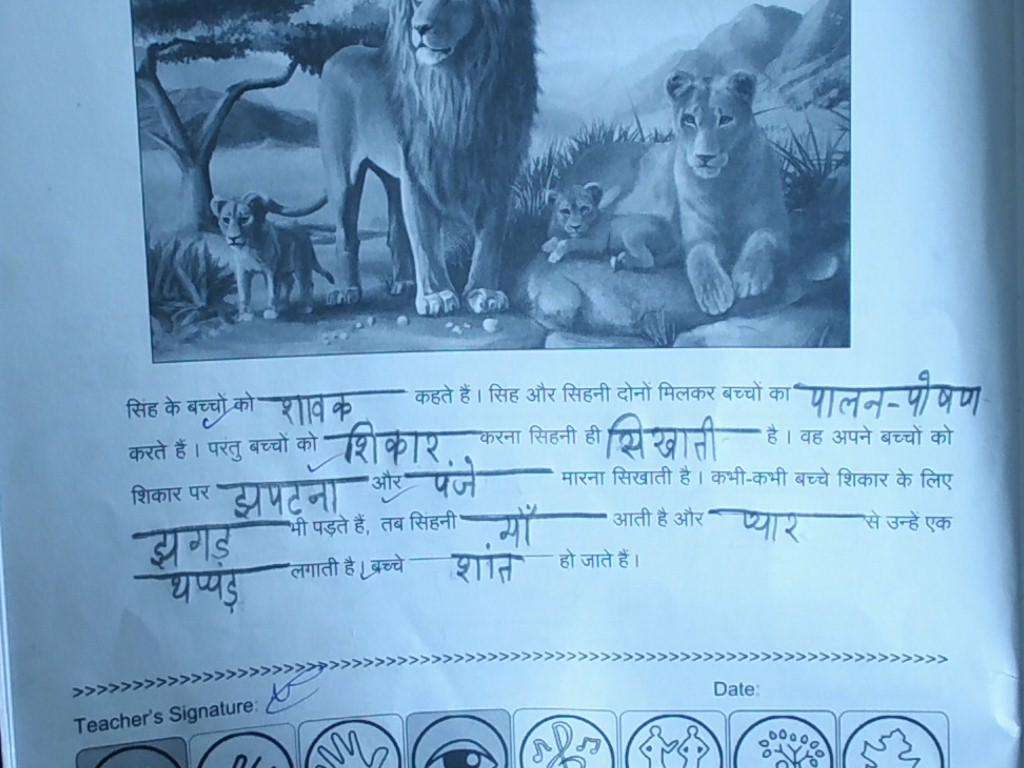 सिंह के बच्चों को शावक कहते हैं। सिंह और सिहनी दोनों मिलकर बच्चों का पालन-पोषण
करते हैं। परंतु बच्चों को शिकार करना सिहनी ही सिखाती है। वह अपने बच्चों को
शिकार पर झपटना और पंजे मारना सिखाती है। कभी-कभी बच्चे शिकार के लिए
झगड़ भी पड़ते हैं, तब सिंहनी माँ आती है और प्यार से उन्हें एक
थप्पड़ लगाती है। बच्चे शांत हो जाते हैं।
Teacher's Signature: Date: